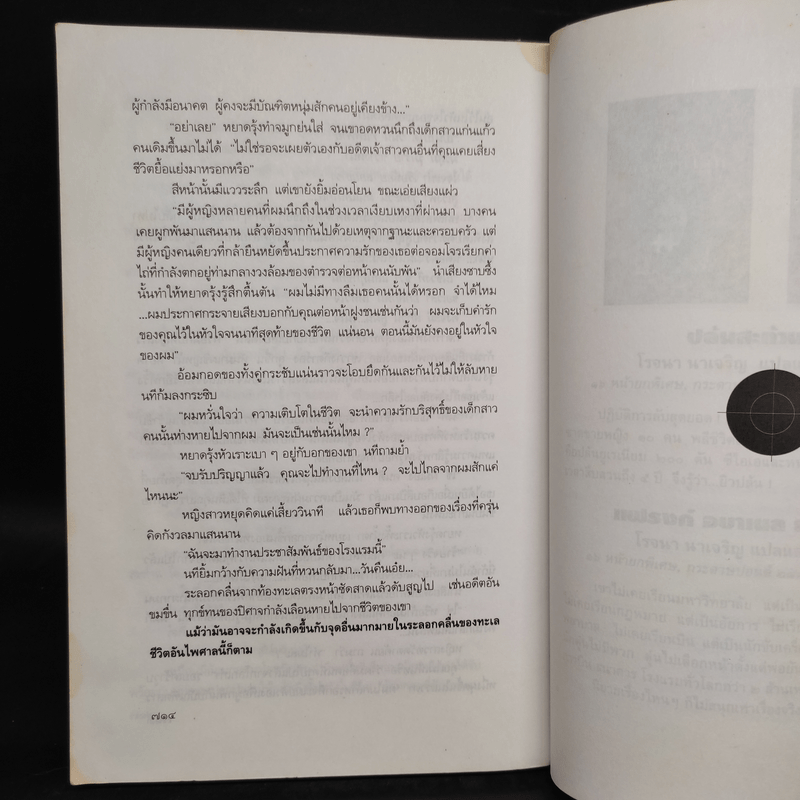 ผู้กำลังมีอนาคต ผู้คงจะมีบัณฑิตหนุ่มสักคนอยู่เคียงข้าง..."
"อย่าเลย" หยาดรุ้งทำจมูกย่นใส่ จนเขาอดหวนนึกถึงเด็กสาวแก่นแก้ว
คนเดิมขึ้นมาไม่ได้ "ไม่ใช่รอจะเผยตัวเองกับอดีตเจ้าสาวคนอื่นที่คุณเคยเสี่ยง
ชีวิตยื้อแย่งมาหรอกหรือ"
สีหน้านั้นมีแววระลึก แต่เขายังยิ้มอ่อนโยน ขณะเอ่ยเสียงแผ่ว
"มีผู้หญิงหลายคนที่ผมนึกถึงในช่วงเวลาเงียบเหงาที่ผ่านมา บางคน
เคยผูกพันมาแสนนาน แล้วต้องจากกันไปด้วยเหตุจากฐานะและครอบครัว แต่
มีผู้หญิงคนเดียวที่กล้ายืนหยัดขึ้นประกาศความรักของเธอต่อจอมโจรเรียกค่า
ไถ่ที่กำลังตกอยู่ท่ามกลางวงล้อมของตำรวจต่อหน้าคนนับพัน" น้ำเสียงซาบซึ้ง
นั้นทำให้หยาดรุ้งรู้สึกตื้นตัน "ผมไม่มีทางลืมเธอคนนั้นได้หรอก จำได้ไหม
...ผมประกาศกระจายเสียงบอกกับคุณต่อหน้าฝูงชนเช่นกันว่า ผมจะเก็บคำรัก
ของคุณไว้ในหัวใจจนนาทีสุดท้ายของชีวิต แน่นอน ตอนนี้มันยังคงอยู่ในหัวใจ
ของผม"
อ้อมกอดของทั้งคู่กระชับแน่นราวจะโอบยึดกันและกันไว้ไม่ให้ลับหาย
นทีก้มลงกระซิบ
"ผมหวั่นใจว่า ความเติบโตในชีวิต จะนำความรักบริสุทธิ์ของเด็กสาว
คนนั้นห่างหายไปจากผม มันจะเป็นเช่นนั้นไหม ?"
หยาดรุ้งหัวเราะเบา ๆ อยู่กับอกของเขา นทีถามย้ำ
"จบรับปริญญาแล้ว คุณจะไปทำงานที่ไหน ? จะไปไกลจากผมสักแค่
ไหนนะ"
หญิงสาวหยุดคิดแค่เสี้ยววินาที แล้วเธอก็พบทางออกของเรื่องที่ครุ่น
คิดกังวลมาแสนนาน
"ฉันจะมาทำงานประชาสัมพันธ์ของโรงแรมนี้"
นทียิ้มกว้างกับความฝันที่หวนกลับมา...วันคืนเอ๋ย...
ระลอกคลื่นจากท้องทะเลตรงหน้าซัดสาดแล้วดับสูญไป เช่นอดีตอัน
ขมขื่น ทุกข์ทนของปีศาจกำลังเลือนหายไปจากชีวิตของเขา
แม้ว่ามันอาจจะกำลังเกิดขึ้นกับจุดอื่นมากมายในระลอกคลื่นของทะเล
ชีวิตอันไพศาลนี้ก็ตาม
๗๑๔